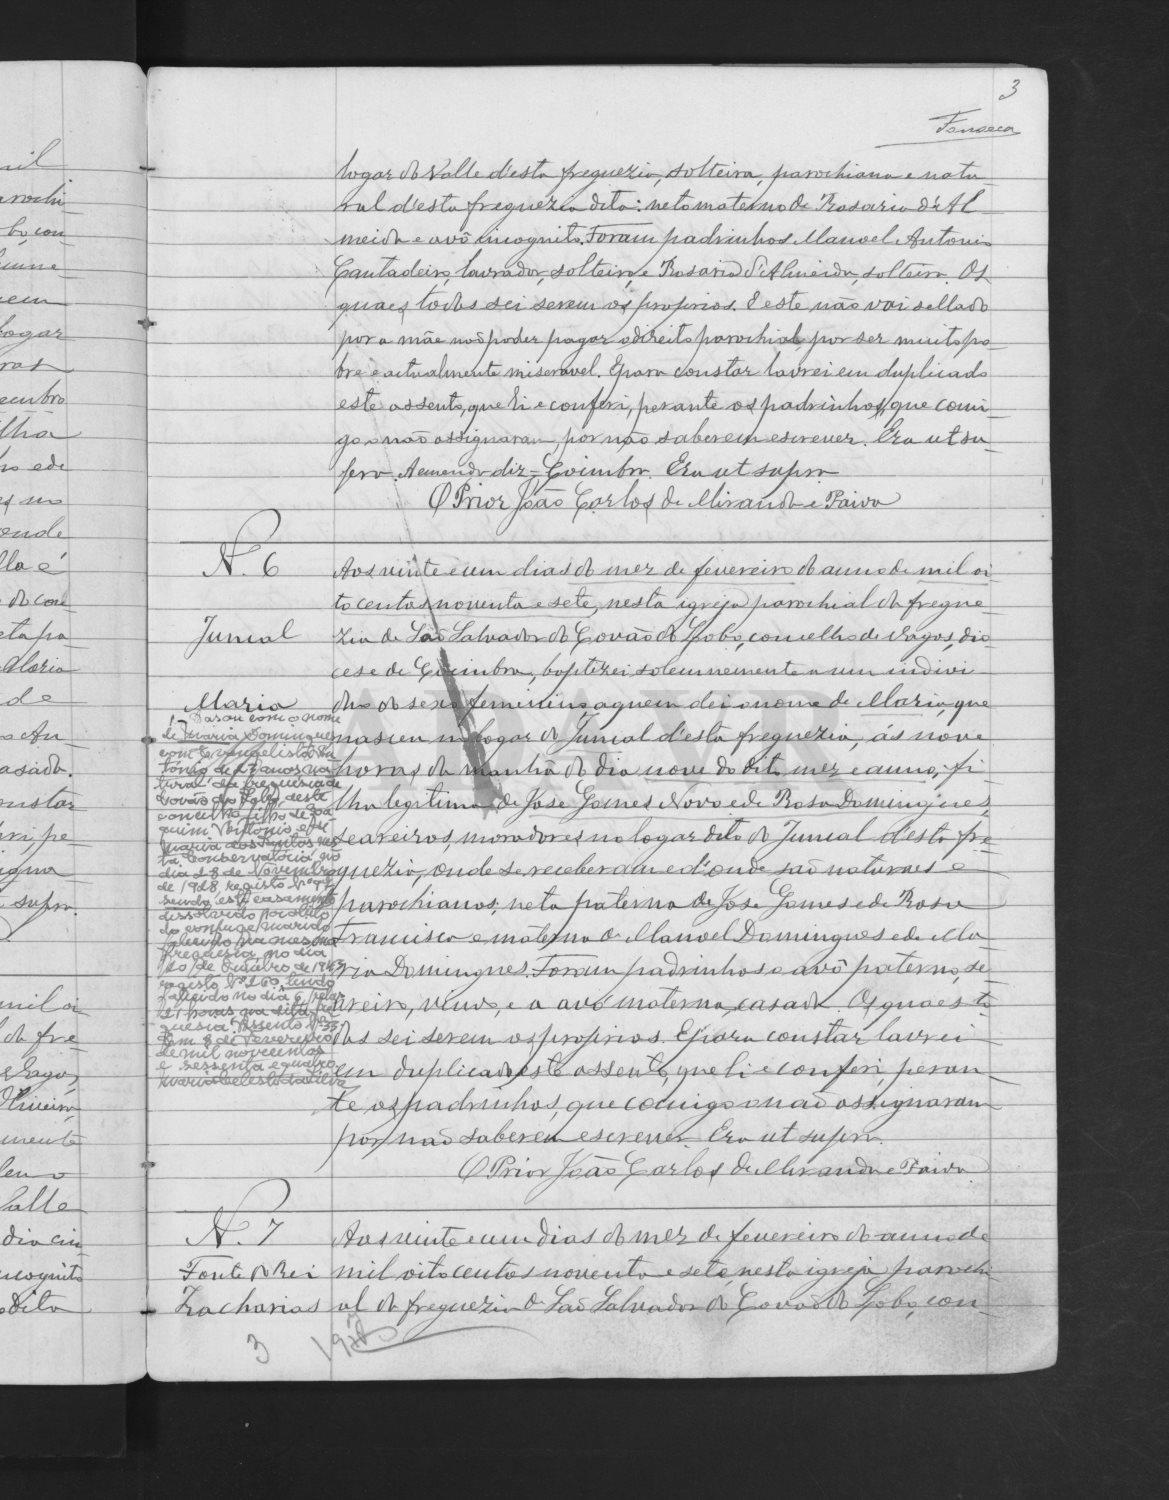 3
Fonseca
logar do Valle d'esta freguezia, solteira, parochiana e natu-
ral d'esta freguezia dita: neto materno de Rosaria d'Al-
meida e avô incognito. Foram padrinhos Manoel Antonio
Cantadeiro, lavrador, solteiro, e Rosaria d'Almeida, solteira. Os
quaes todos sei serem os proprios. E este não vai sellado
por a mãe não poder pagar o direito parochial, por ser muito po-
bre e actualmente miseravel. E para constar lavrei em duplicado
este assento, que li e conferi, perante os padrinhos, que comi-
go o não assignaram, por não saberem escrever. Era ut su-
pra. A emenda diz = Coimbra. Era ut supra
O Prior João Carlos de Miranda e Paiva
N. 6
Juncal
Maria
Aos vinte e um dias do mez de fevereiro do anno de mil oi-
to centos noventa e sete, nesta igreja parochial da fregue-
zia de São Salvador do Covão do Lobo, concelho de Vagos, dio-
cese de Coimbra, baptizei solemnemente a um indivi-
duo do sexo feminino, a quem dei o nome de Maria, que
nasceu no logar do Juncal d'esta freguezia, ás nove
horas da manhã do dia nove do dito mez e anno, fi-
lha legitima de Jose Gomes Novo e de Rosa Domingues,
seareiros, moradores no logar dito do Juncal d'esta fre-
guezia, onde se receberam e d'onde são naturaes e
parochianos; neta paterna de Jose Gomes e de Rosa
Francisca e materna de Manoel Domingues e de Ma-
ria Domingues. Foram padrinhos o avô paterno, se-
areiro, viuvo, e a avó materna, casada. Os quaes to-
dos sei serem os proprios. E para constar lavrei
em duplicado este assento, que li e conferi, peran-
te os padrinhos, que comigo o não assignaram
por não saberem escrever. Era ut supra.
O Prior João Carlos de Miranda e Paiva
Casou com o nome
de Maria Domingues
com Evangelista An-
tónio de 27 anos na-
tural da freguesia de
Covão do Lobo, deste
concelho filho de Joa-
quim António e de
Maria dos Santos nes-
ta Conservatória no
dia 28 de Novembro
de 1928, registo Nº
sendo este casamento
dissolvido por óbito
do conjuge marido
falecido na mesma
freguesia no dia
de Outubro de
registo Nº 260, tendo
falecido no dia 6 pelas
horas na dita fre-
guesia. Assento Nº 33
Em 8 de Fevereiro
de mil novecentos
e sessenta e quatro
Maria Celeste da Silva
N. 7
Fonte do Rei
Zacharias
Aos vinte e um dias do mez de fevereiro do anno de
mil oito centos noventa e sete, nesta igreja parochi-
al da freguezia de São Salvador do Covão do Lobo, con-
3